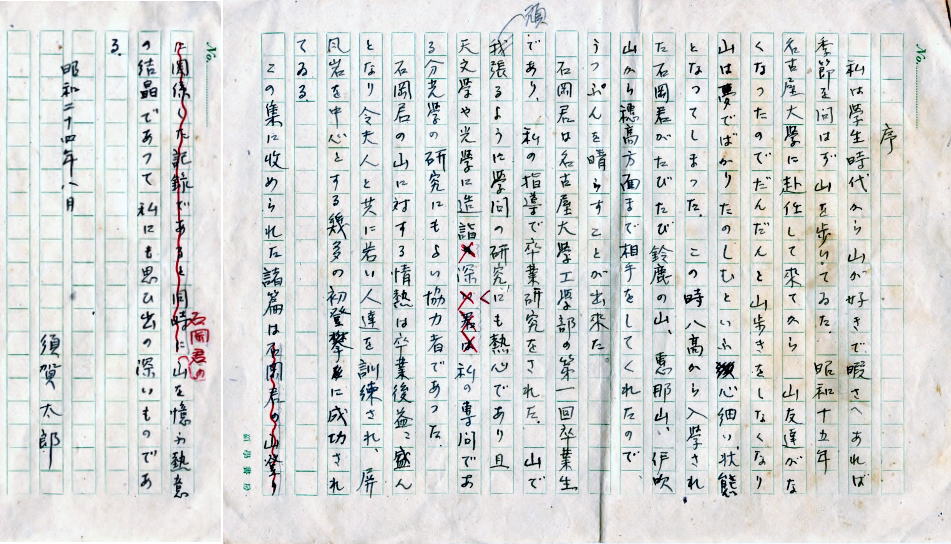 序
私は学生時代から山が好きで暇さへあれば
季節を問はず山を歩いてゐた。昭和十五年
名古屋大学に赴任して来てから山友達がな
くなったのでだんだんと山歩きをしなくなり
山は夢でばかりたのしむといふ心細い状態
となってしまった。この時八高から入学され
た石岡君がたびたび鈴鹿の山、恵那山、伊吹
山から穂高方面まで相手をしてくれたので
うつぷんを晴らすことが出来た。
石岡君は名古屋大學工学部の第一回卒業生
であり、私の指導で卒業研究をされた。山で
頑
我張るように学問の研究にも熱心であり且
天文學や光學に造詣深く君は私の専門であ
る分光学の研究にもよい協力者であった。
石岡君の山に対する情熱は卒業後益々盛ん
となり令夫人と共に若い人達を訓練され、屏
風岩を中心とする幾多の初登攀に成功され
てゐる。
この集に收められた諸篇は石岡君の山登り
No.
に関係した記録であると同時に山を憶ふ熱意
石岡君の
の結晶であって私にも思ひ出の深いものであ
る。
昭和二十四年八月
須賀太郎
No.